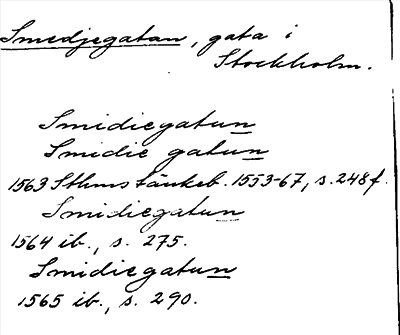 Smedjegatan, gata i
Stockholm.
Smidiegatun
Smidie gatun
1563 Sthms tänkeb. 1553-67, s. 248f.
Smidiegatun
1564 ib., s. 275.
Smidiegatun
1565 ib., s. 290.